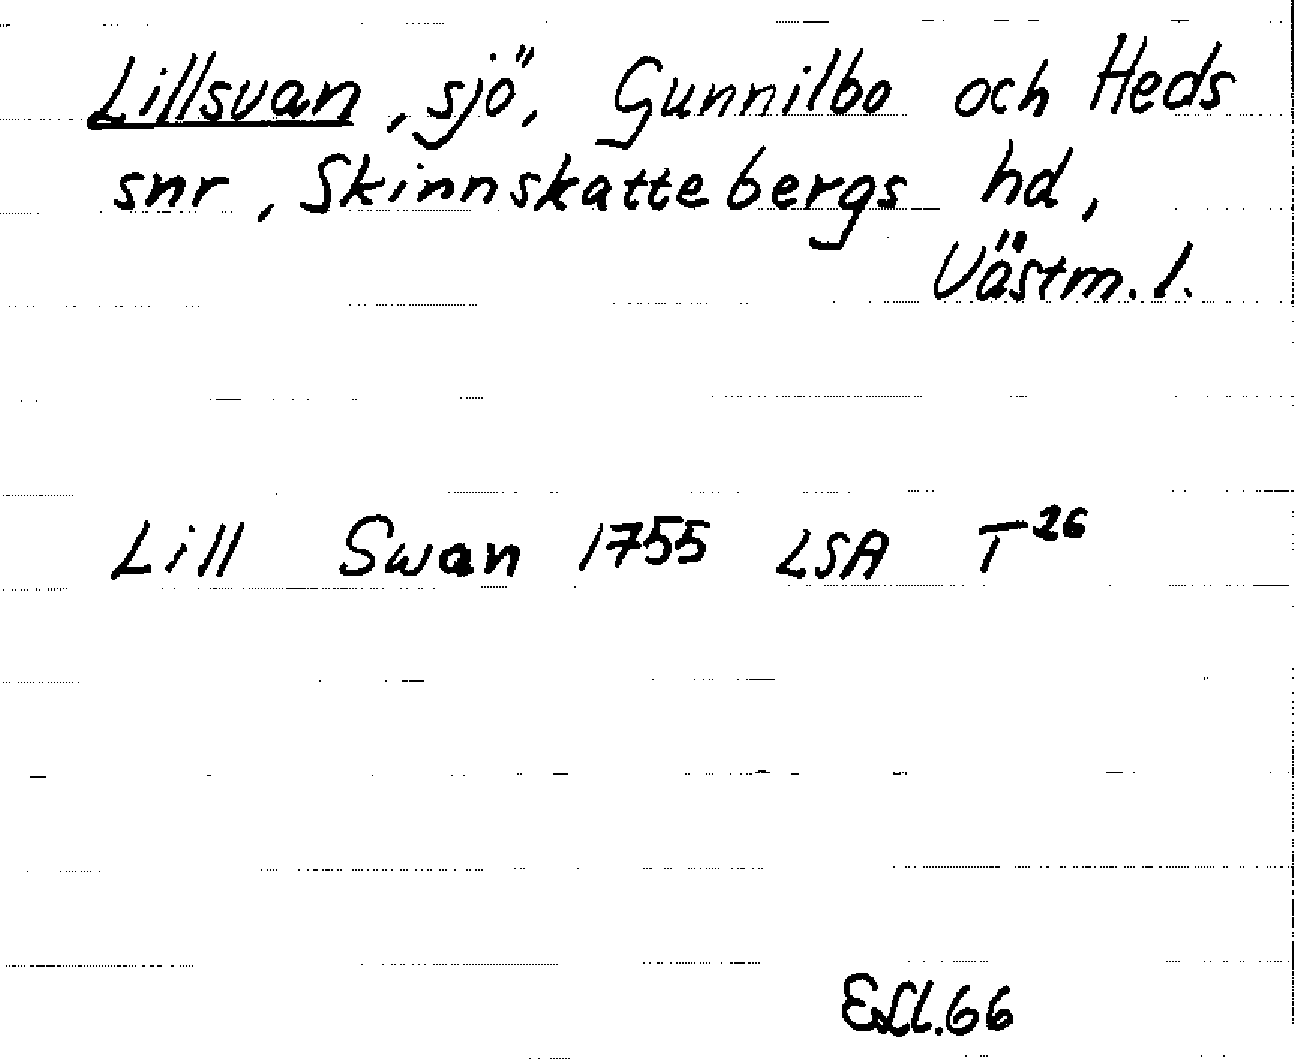 Lillsvan, sjö, Gunnilbo och Heds
snr, Skinnskattebergs hd,
Västm. l.
Lill Swan 1755 LSA T²⁶